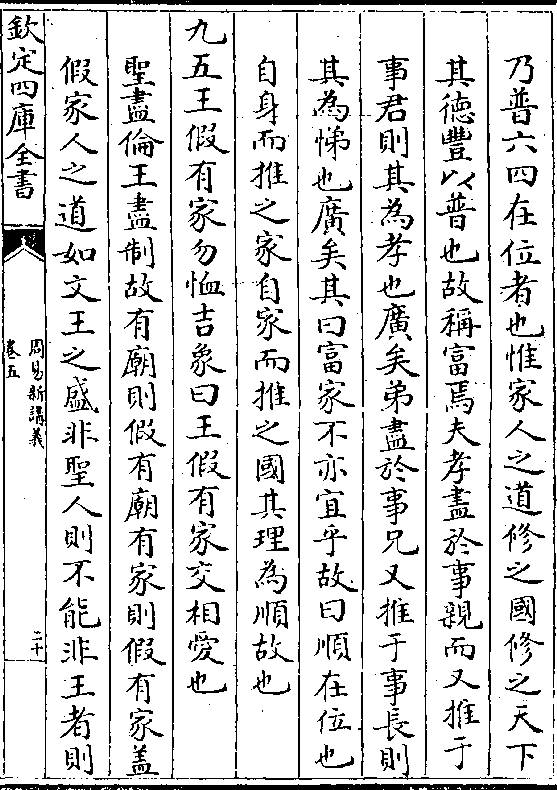 乃普六四在位者也惟家人之道修之國修之天下
其德豐以普也故稱富焉夫孝盡於事親而又推于
事君則其為孝也廣矣弟盡於事兄又推于事長則
其為悌也廣矣其曰富家不亦宜乎故曰順在位也
自身而推之家自家而推之國其理為順故也
九五王假有家勿恤吉象曰王假有家交相愛也
聖盡倫王盡制故有廟則假有廟有家則假有家盖
假家人之道如文王之盛非聖人則不能非王者則
欽定四庫全書
周易新講義
卷五
二十